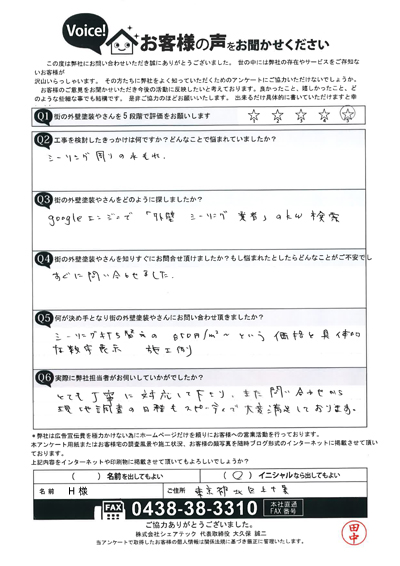 Voice!
お客様の声をお聞かせください
この度は弊社にお問い合わせいただき誠にありがとうございました。世の中には弊社の存在やサービスをご存知ないお客様が
沢山いらっしゃいます。その方たちに弊社をよく知っていただくためのアンケートにご協力いただけないでしょうか。
お客様のご意見をお聞かせいただき今後の活動に反映したいと考えております。良かったこと、嬉しかったこと、ど
のような些細な事でも結構です。是非ご協力のほどお願いいたします。出来るだけ具体的に書いていただけますと幸
Q1 街の外壁塗装やさんを5段階で評価をお願いします
☆ ☆ ☆ ☆ ☆
Q2 工事を検討したきっかけは何ですか？どんなことで悩まれていましたか？
シーリング周りの水もれ.
Q3 街の外壁塗装やさんをどのように探しましたか？
googleエンジンで「外壁 シーリング 業者」のkw検索
Q4 街の外壁塗装やさんを知りすぐにお問合せ頂けましたか？もし悩まれたとしたらどんなことがご不安でし
すぐに問い合わせました.
Q5 何が決め手となり街の外壁塗装やさんにお問い合わせ頂きましたか？
シーリング打ち替えの 850円/m²〜 という 価格と具体的
な数字表示 施工例
Q6 実際に弊社担当者がお伺いしていかがでしたか？
とても丁寧に対応して下さり、また問い合わせから
現地調査の日程もスピーディで大変満足しております。
＊弊社は広告宣伝費を極力かけない為にホームページだけを頼りにお客様への営業活動を行っております。
本アンケート用紙またはお客様宅の調査風景や施工状況、お客様の顔写真を随時ブログ形式のインターネットに掲載させて頂い
ております。
上記内容をインターネットや印刷物に掲載させて頂いてもよろしいでしょうか？
（ ）名前を出してもよい （○）イニシャルなら出してもよい
名前 H様 ご住所 東京都北区上十条
FAX 0438-38-3310 本社直通 FAX番号
ご協力ありがとうございました。
株式会社シェアテック 代表取締役 大久保 誠二
当アンケートで取得したお客様の個人情報は関係法規に基づき厳正に管理いたします。
田中